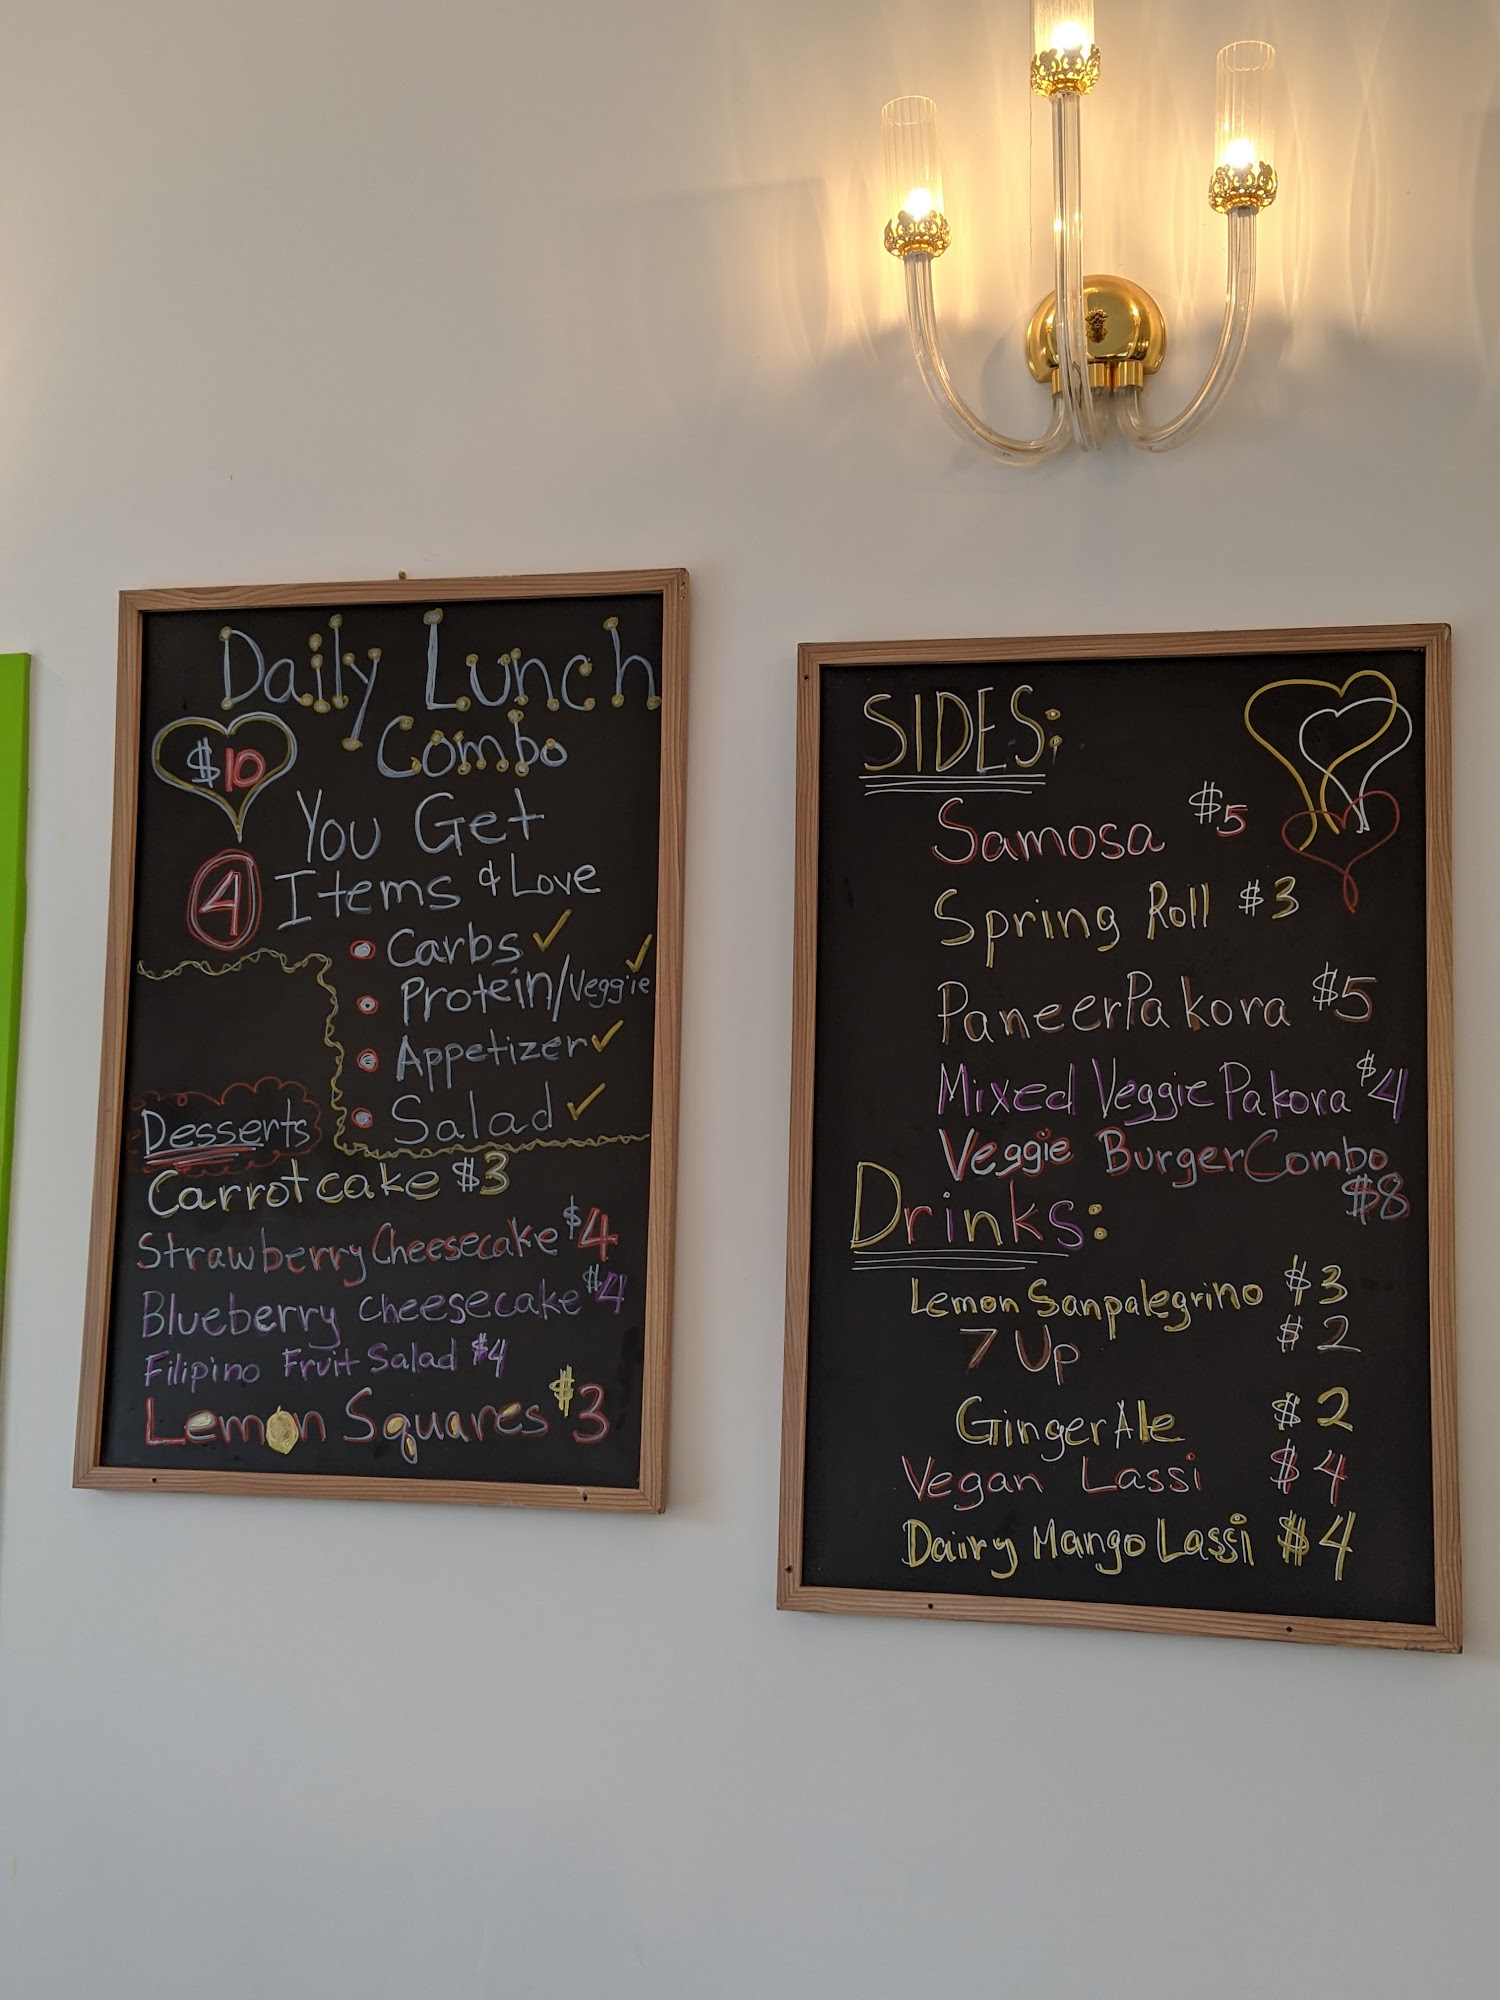 Daily Lunch
Combo
$10
You Get
4 Items & Love
Carbs ✓
Protein/Veggie ✓
Appetizer ✓
Salad ✓
Desserts
Carrot cake $3
Strawberry Cheesecake $4
Blueberry cheesecake $4
Filipino Fruit Salad $4
Lemon Squares $3
SIDES:
Samosa $5
Spring Roll $3
Paneer Pakora $5
Mixed Veggie Pakora $4
Veggie Burger Combo
$8
Drinks:
Lemon Sanpalegrino $3
7 Up $2
Ginger Ale $2
Vegan Lassi $4
Dairy Mango Lassi $4